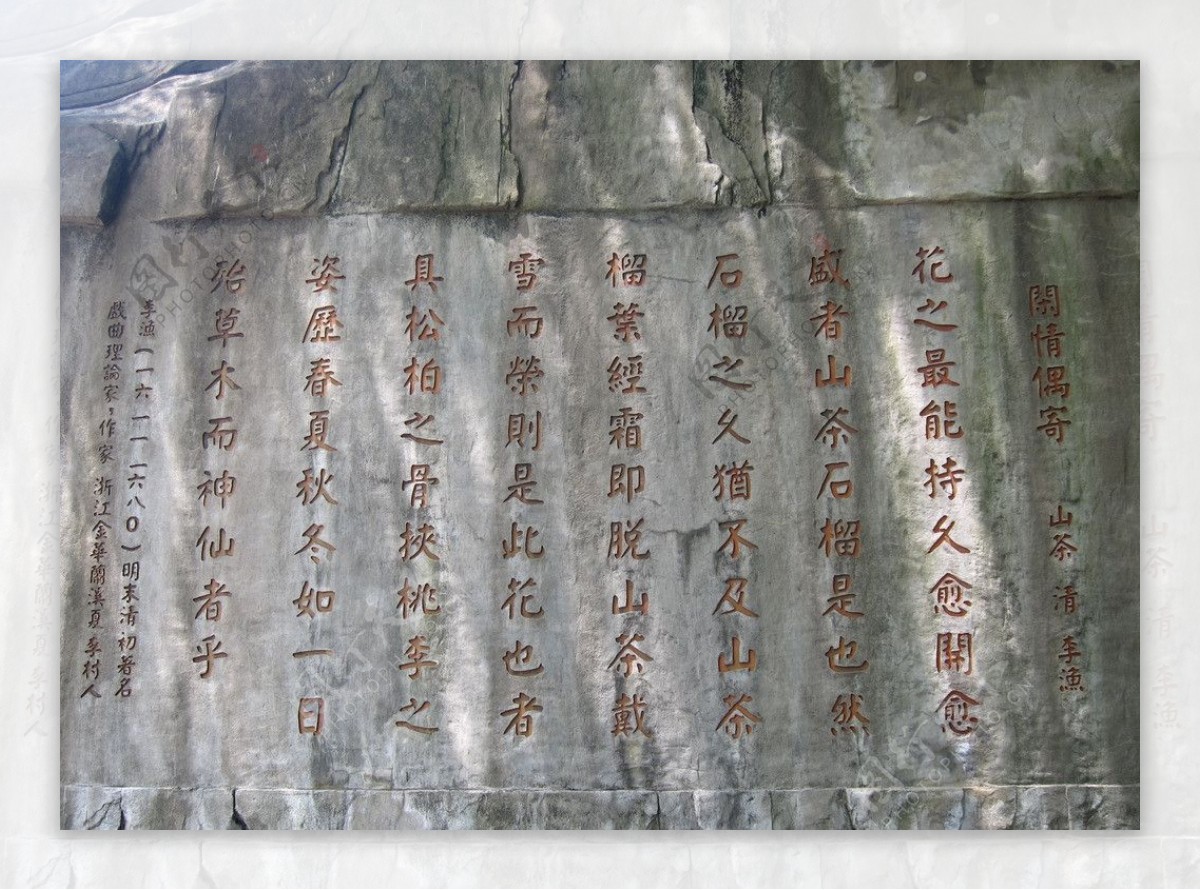 閑情偶寄 山茶 清 李漁
花之最能持久愈開愈
盛者山茶石榴是也然
石榴之久猶不及山茶
榴葉經霜即脱山茶戴
雪而榮則是此花也者
具松柏之骨挾桃李之
姿歷春夏秋冬如一日
殆草木而神仙者乎
李漁(一六一一 一六八〇)明末清初著名
戲曲理論家、作家 浙江金華蘭溪夏李村人